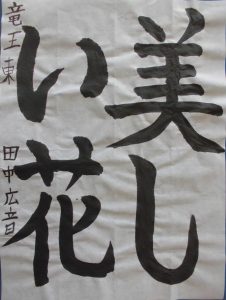 美し
い花
竜王東
田中広音